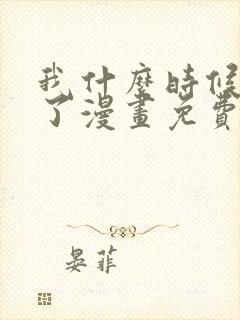 我什麼時候
了漫畫免費
晏菲